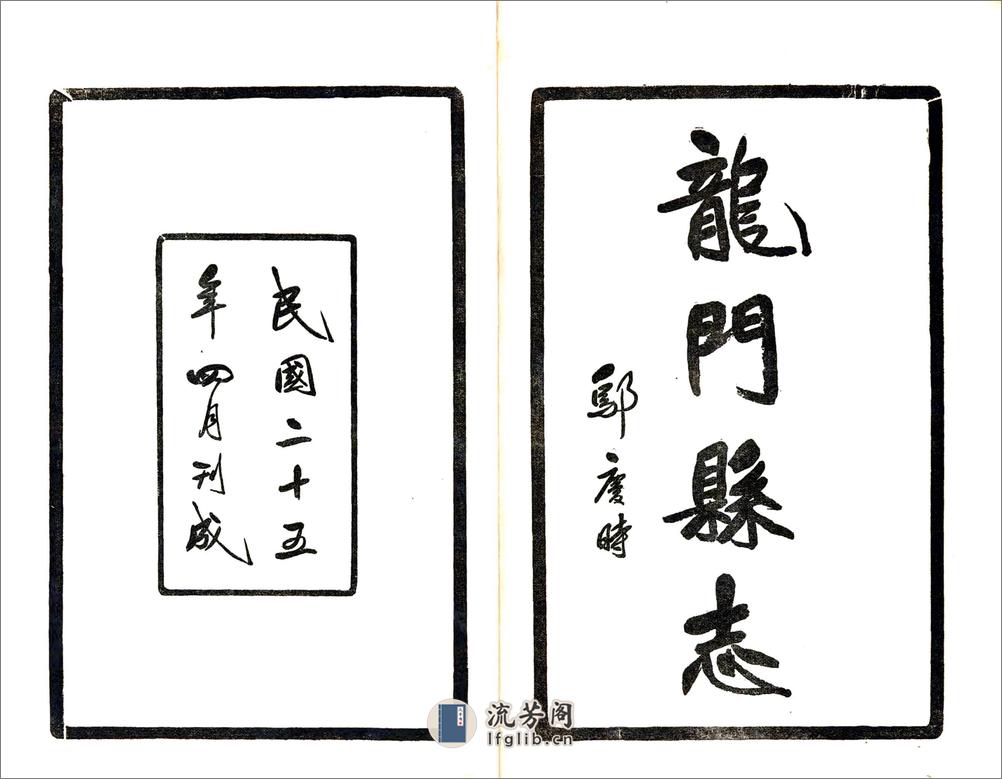 龍門縣志
鄔慶時
民國二十五
年四月刊成
流芳阁
lfglib.cn